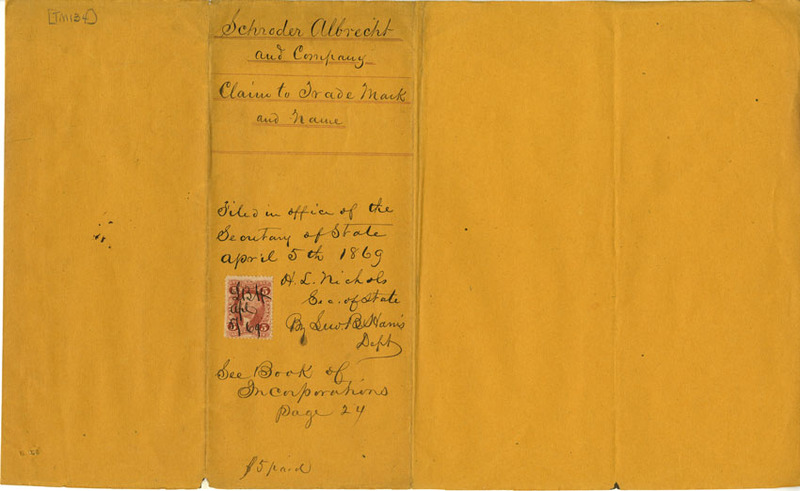 [TM134]
Schroder Albrecht
and Company
Claim to Trade Mark
and Name
Filed in office of the
Secretary of State
April 5th 1869
H. L. Nichols
Sec. of State
By Lew B. Harris
Dept
Apl
5/69
See Book of
Incorporations
page 24
$5 paid